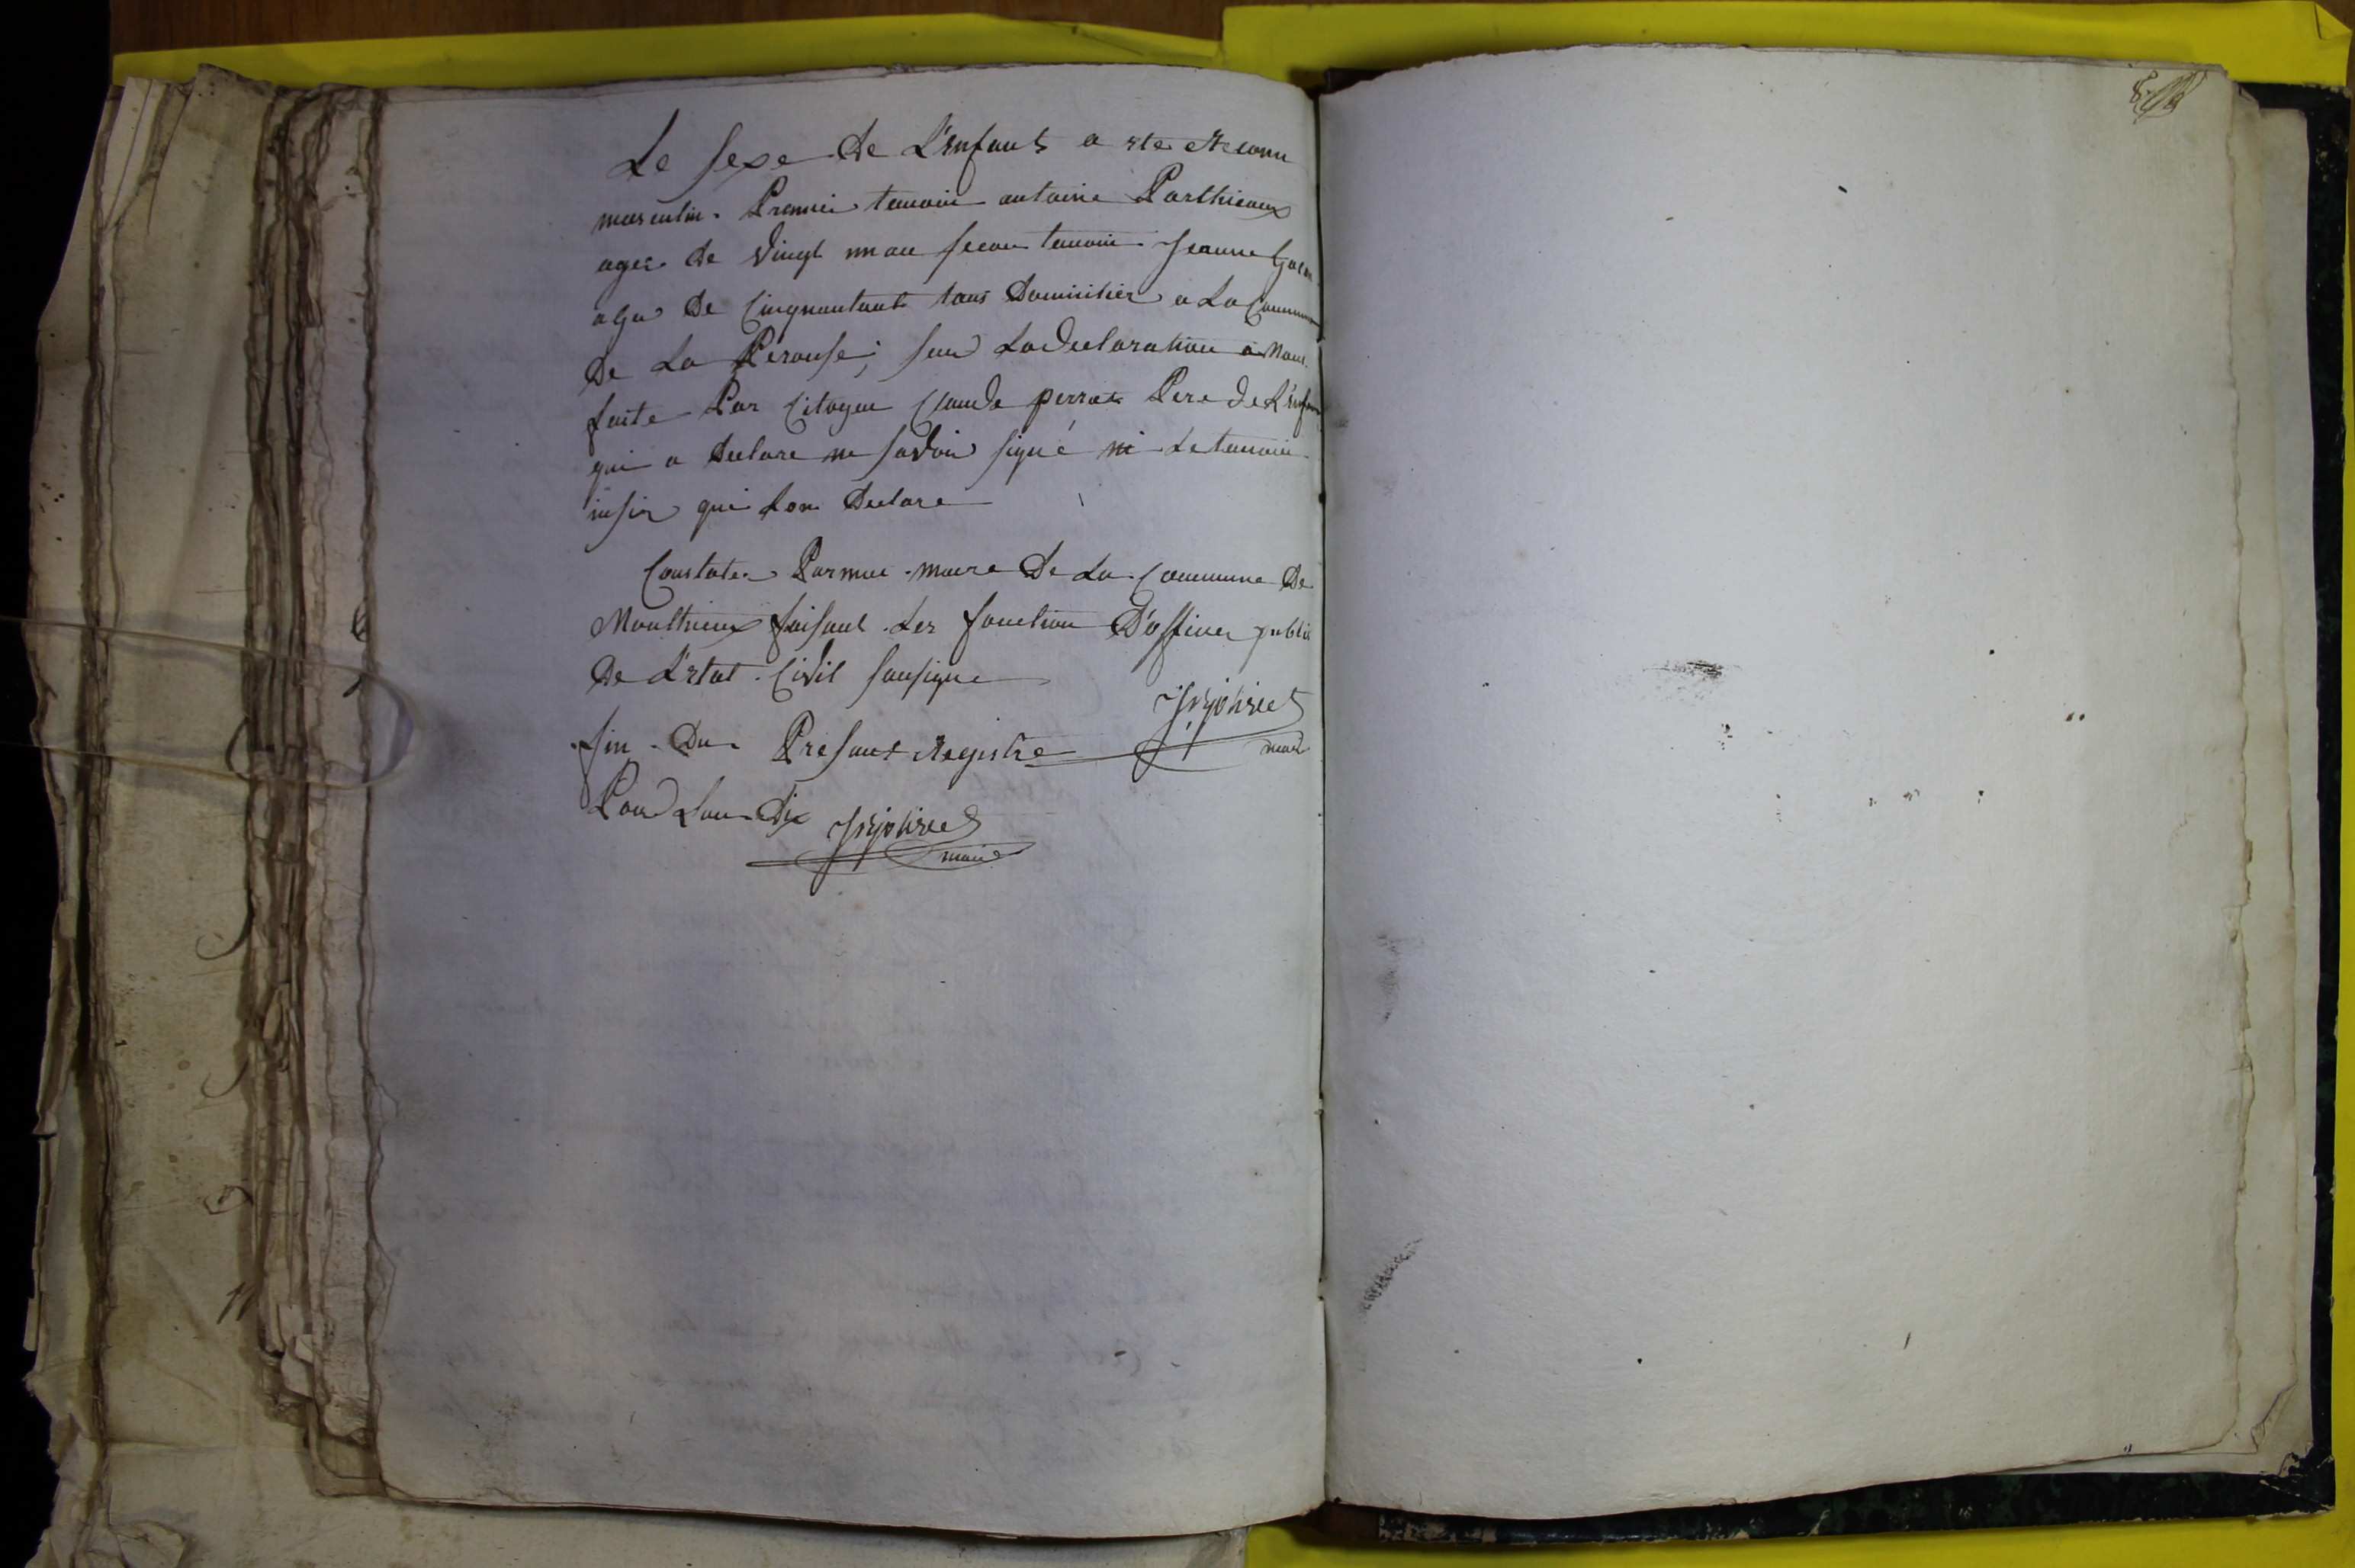 Le sexe de L'enfant a ete Reconu
masculin. Premier temoin antoine Parthieaux
ages de vingt un an secon temoin Jeanne
age de Cinquantant tous Domicilier a La Commune
De La Perouse; sur La declaration a Nous
faite Par Citoyen Claude perrot Pere de L'enfan
qui a declare ne savoir signé ni Le temoin
insin qui Lon Declare
Constater Par moi maire De La Commune De
Monthieux faisant Les fonction D'officier public
De L'etat Civil sousigne
fin Du Presant Registre
maire
Pour Lan Dix
maire